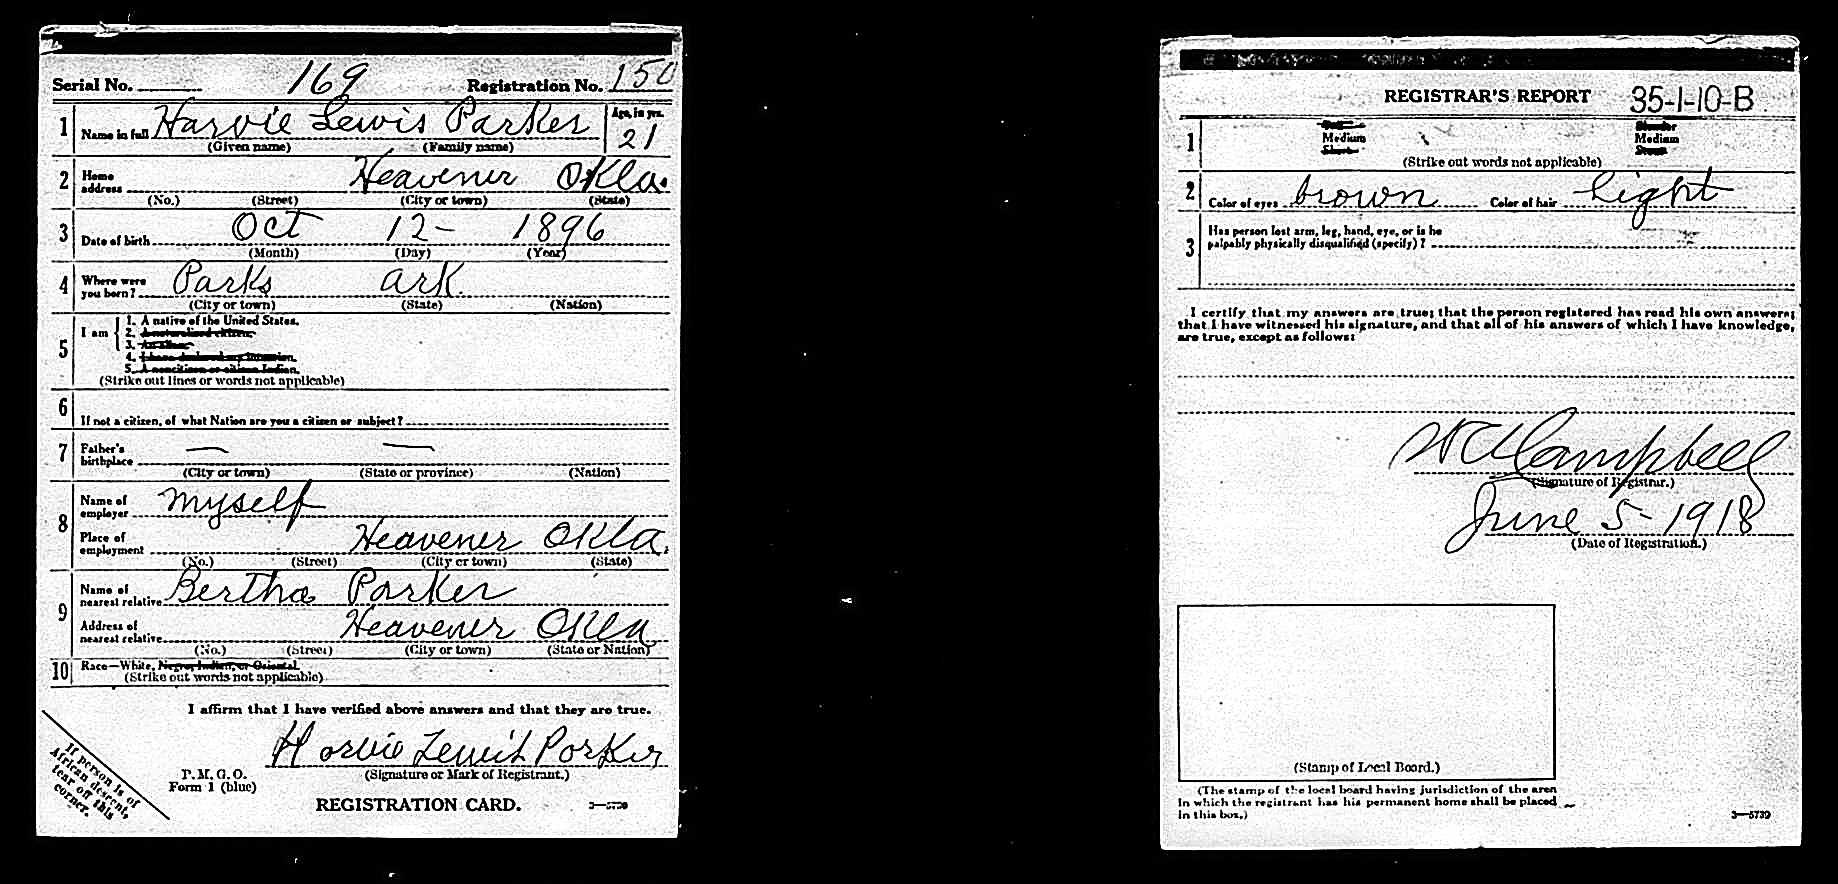 Serial No. 169 Registration No. 150
1 Name in full Harvie Lewis Parker Age, in yrs. 21
(Given name) (Family name)
2 Home address Heavener Okla.
(No.) (Street) (City or town) (State)
3 Date of birth Oct 12- 1896
(Month) (Day) (Year)
4 Where were you born? Parks Ark.
(City or town) (State) (Nation)
5 I am 1. A native of the United States.
2. A naturalized citizen.
3. An alien.
4. I have declared my intention.
5. A noncitizen or citizen Indian.
(Strike out lines or words not applicable)
6 If not a citizen, of what Nation are you a citizen or subject?
7 Father's birthplace — —
(City or town) (State or province) (Nation)
8 Name of employer myself
Place of employment Heavener Okla.
(No.) (Street) (City or town) (State)
9 Name of nearest relative Bertha Parker
Address of nearest relative Heavener Okla
(No.) (Street) (City or town) (State or Nation)
10 Race—White, Negro, Indian, or Oriental.
(Strike out words not applicable)
I affirm that I have verified above answers and that they are true.
Harvie Lewis Parker
(Signature or Mark of Registrant.)
P. M. G. O.
Form 1 (blue)
REGISTRATION CARD.
If person is of
African descent,
tear off this
corner.
REGISTRAR'S REPORT 35-1-10-B
1 Tall Slender
Medium Medium
Short Stout
(Strike out words not applicable)
2 Color of eyes brown Color of hair light
3 Has person lost arm, leg, hand, eye, or is he
palpably physically disqualified (specify)?
I certify that my answers are true; that the person registered has read his own answers;
that I have witnessed his signature, and that all of his answers of which I have knowledge,
are true, except as follows:
Campbell
(Signature of Registrar.)
June 5-1918
(Date of Registration.)
(Stamp of Local Board.)
(The stamp of the local board having jurisdiction of the area
in which the registrant has his permanent home shall be placed
in this box.)
3—5739